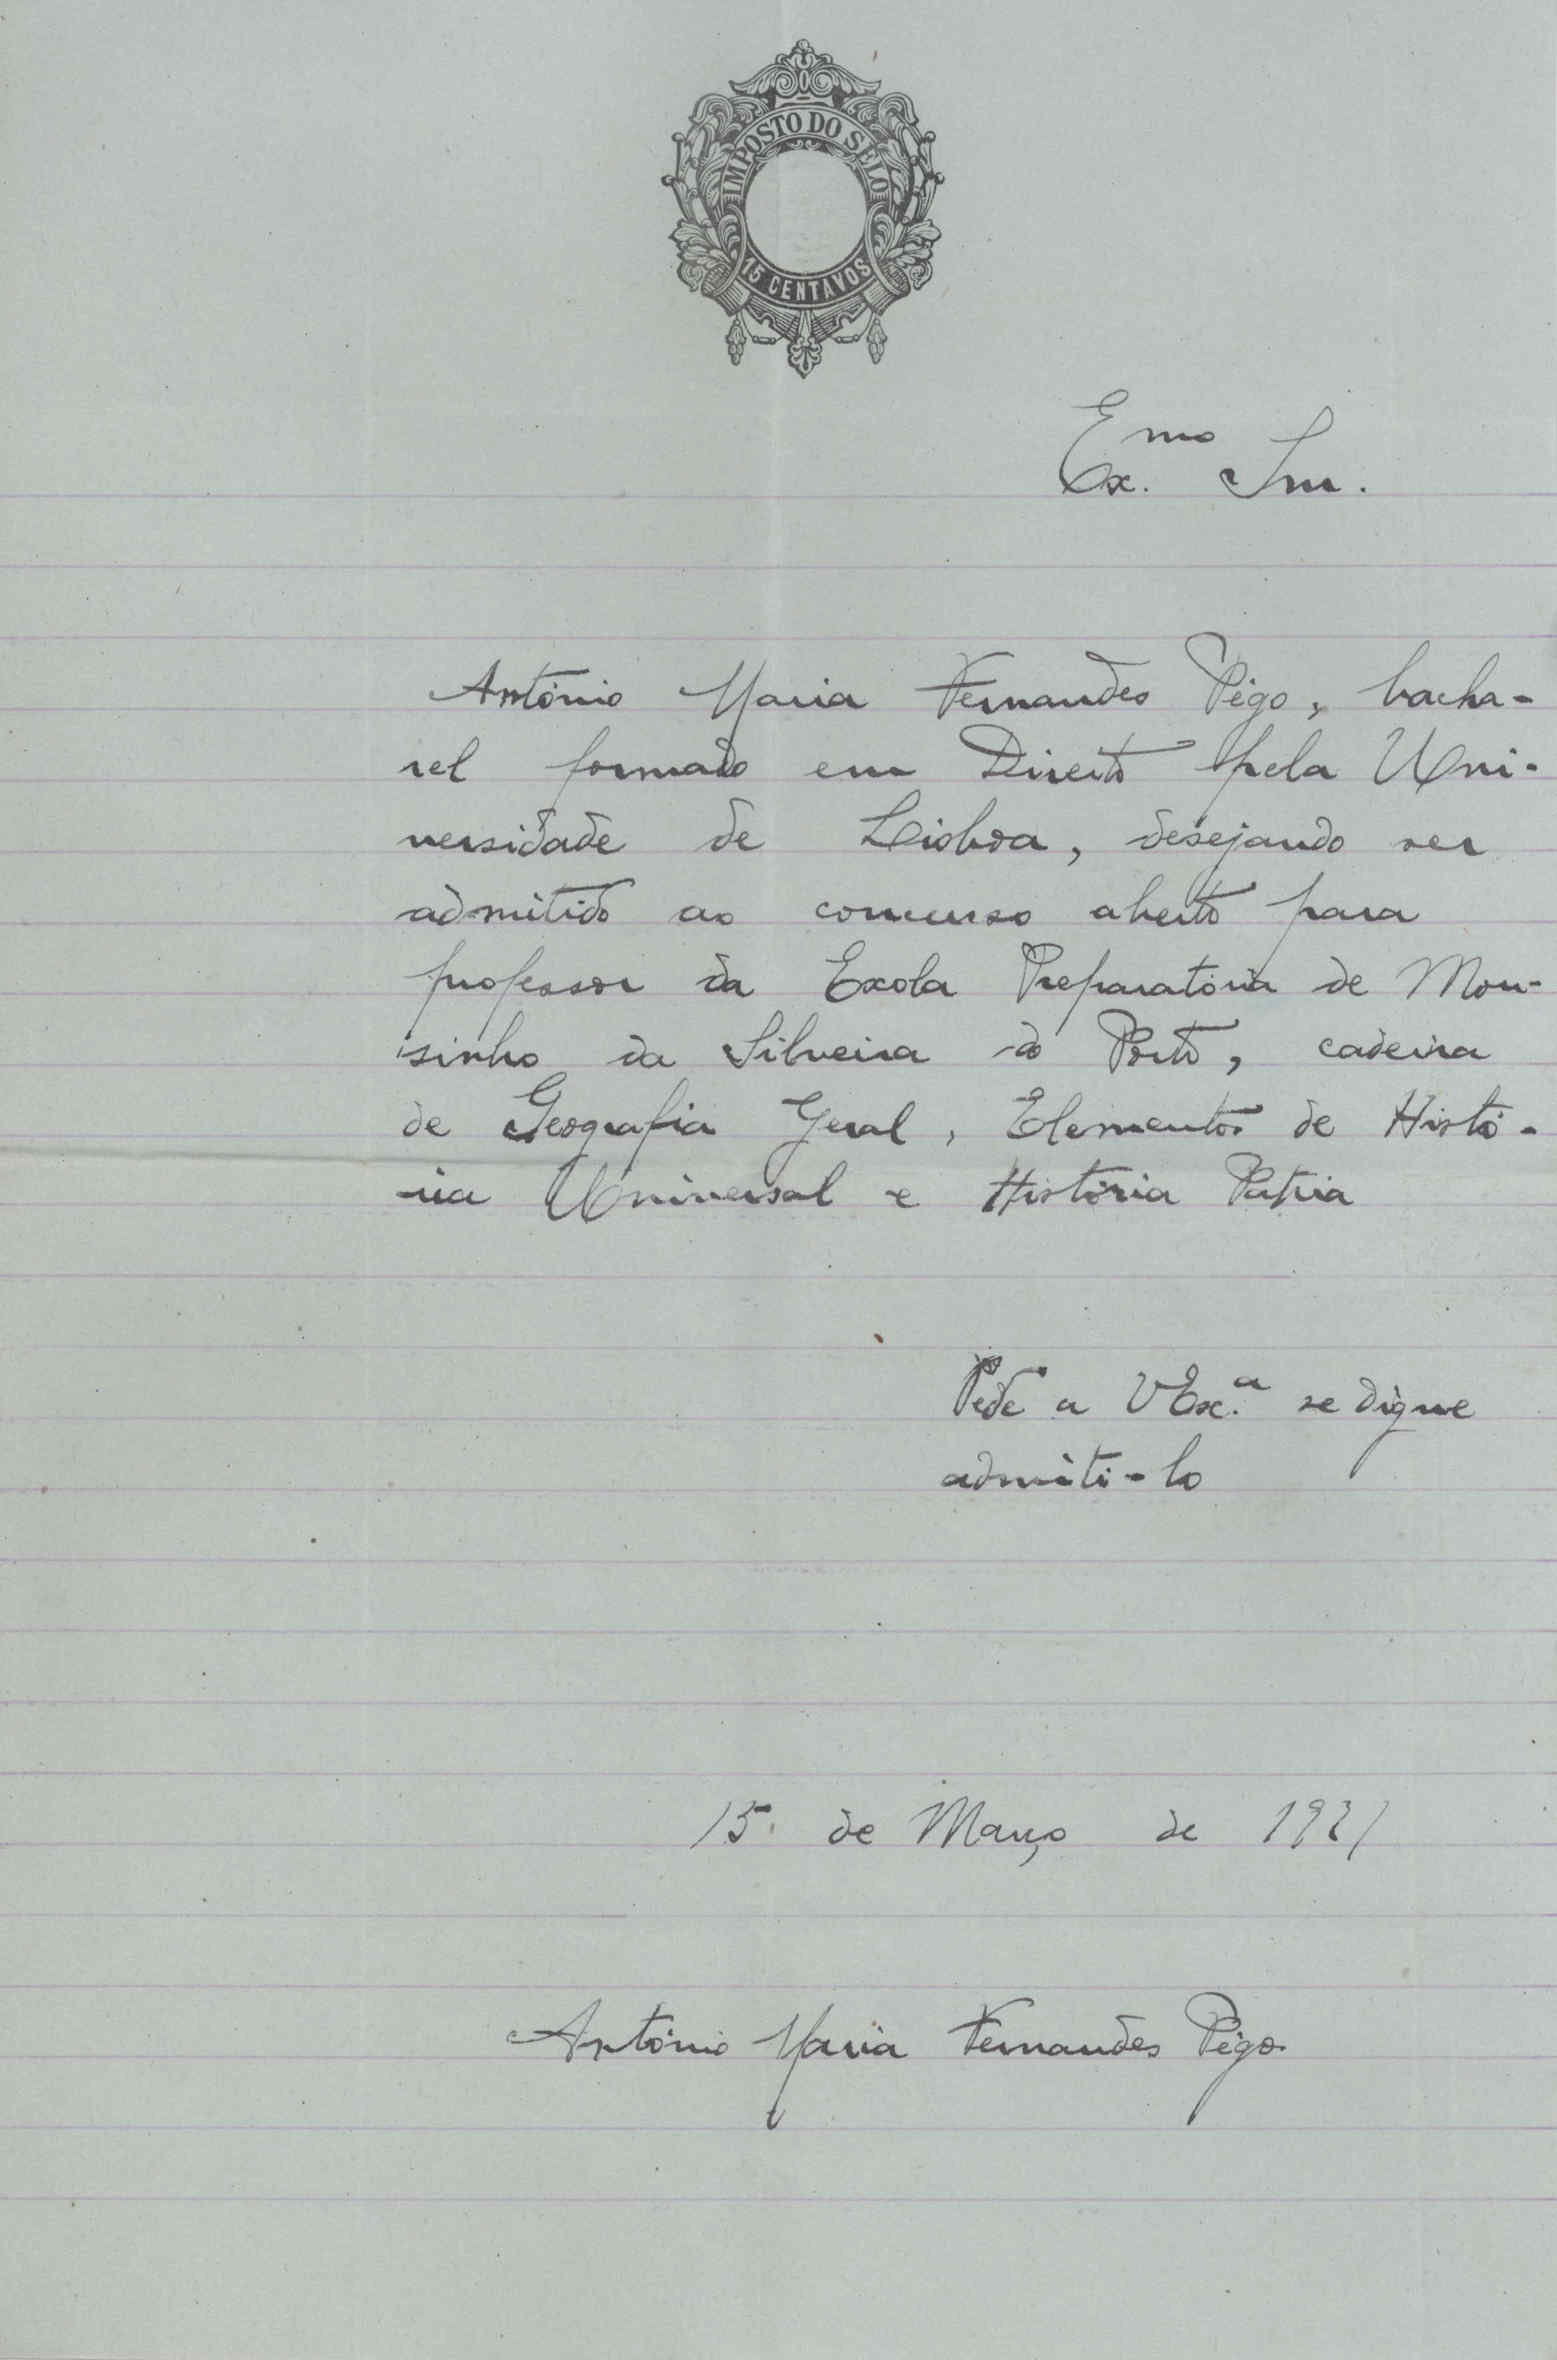 IMPOSTO DO SELO
15 CENTAVOS
Ex.mo Snr.
António Maria Fernandes Pêgo, bacha-
rel formado em Direito pela Uni-
versidade de Lisboa, desejando ser
admitido ao concurso aberto para
professor da Escola Preparatória de Mou-
sinho da Silveira do Porto, cadeira
de Geografia Geral, Elementos de Histó-
ria Universal e História Patria
Pede a V Ex.a se digne
admiti-lo
15 de Março de 1921
António Maria Fernandes Pêgo